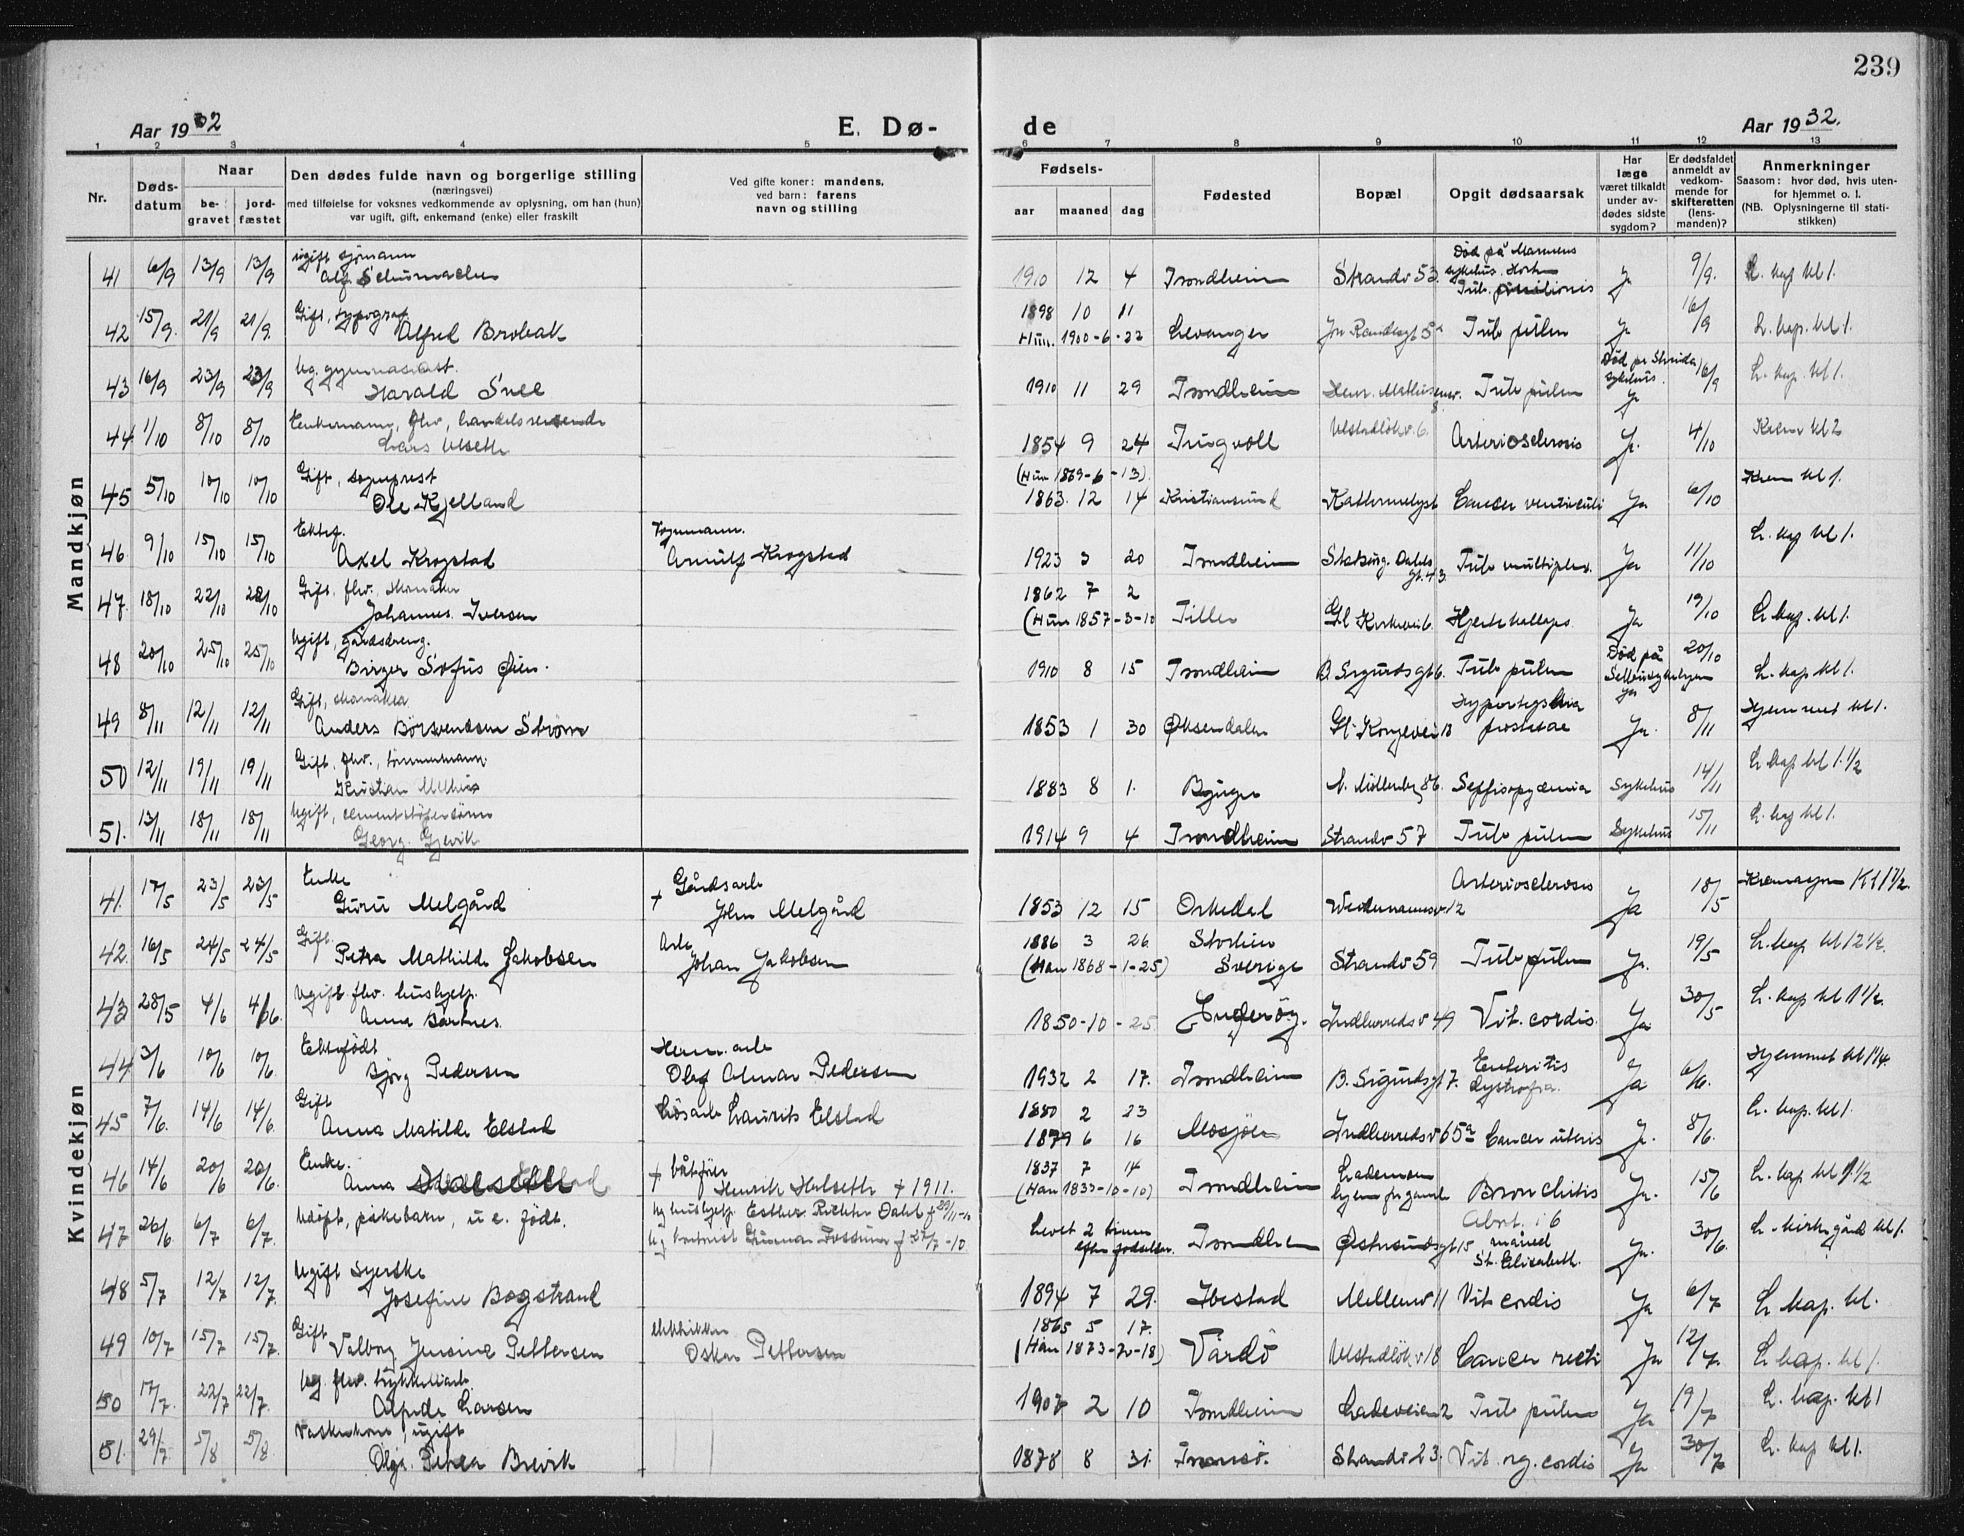 239
Aar 1932
E. Dø-
de
Aar 1932.
1 2 3 4 5 6 7 8 9 10 11 12 13
Nr.
Døds-
datum
Naar
be-
gravet
jord-
fæstet
Den dødes fulde navn og borgerlige stilling
(næringsvei)
med tilføielse for voksnes vedkommende av oplysning, om han (hun)
var ugift, gift, enkemand (enke) eller fraskilt
Ved gifte koner: mandens,
ved barn: farens
navn og stilling
Fødsels-
aar maaned dag
Fødested
Bopæl
Opgit dødsaarsak
Har
læge
været tilkaldt
under av-
dødes sidste
sygdom?
Er dødsfaldet
anmeldt av
vedkom-
mende for
skifteretten
(lens-
manden)?
Anmerkninger
Saasom: hvor død, hvis uten-
for hjemmet o. l.
(NB. Oplysningerne til stati-
stikken)
Mandkjøn
41 6/9 13/9 13/9 ugift sjømann
Alf Schumacher
1910 12 4 Trondheim Strandv 53. Død på Marinens sykehus, Horten Ja 9/9. L. kap kl 1.
42 15/9. 21/9 21/9. Gift, typograf
Alfred Brobak
1898 10 11
Hun. 1900-6-22 Levanger Tub pulm Ja 16/9 L. kap. kl 1.
43 16/9 23/9 23/9 Ug. gymnasiast.
Harald Snee
1910 11 29 Trondheim Tub pulm Ja 16/9 L. kap. kl 1.
44 1/10 8/10 8/10 Enkemann, fhv. handelsreisende
Lars Ulseth
1854 9 24 Tingvoll Ulstadløkv. 6. Arteriosclerosis Ja. 4/10 Krem kl 2
45 5/10 10/10 10/10 Gift, sogneprest
Ole Kjelland
(Hun 1869-6-13)
1863. 12 14 Kristiansund Cancer ventriculi Ja 6/10 Krem kl 1.
46 9/10 15/10 15/10 Ektef.
Axel Krogstad
Arnulf Krogstad
1923 3 20 Trondheim Tub multiplex. Ja 11/10 L. kap kl 1.
47. 18/10 22/10 22/10 Gift, fhv.
Johannes Iversen
1862 7 2
(Hun 1857-3-10 Tiller Gl Kirkevei 6. Hjertekollaps. Ja 19/10 L. kap. kl 1.
48 20/10 25/10 25/10 Ugift, gårdsdreng.
Birger Sofus Øien.
1910 8 15 Trondheim B. Sigurdsgt 6. Tub pulm Død på 20/10 L. kap kl 1.
49 8/11 12/11 12/11 Gift,
Anders Börsvendsen Strøm
1853 1 30 Øksendalen Gl. Kongevei 18 prostatae Ja. 8/11 Hjemmet kl 1.
50 12/11 19/11 19/11 Gift, fhv., tømmermann.
Kristian Melhus
1883 8 1. Bjugn N. Møllenberg 86. Sepsisopyæmia Sykehus 14/11 L kap kl 1 1/2
51. 13/11 18/11 18/11 Ugift, cementstøper
Georg. Gjevik
1914 9 4 Trondheim Strandv 57 Tub pulm Sykehus 15/11 L. kap kl 1.
Kvindekjøn
41. 17/5 23/5 23/5 Enke
Guru Melgård
+ Gårdsarb
John Melgård
1853 12 15 Orkedal 12 Arteriosclerosis Ja 18/5 Kremasjon Kl 1 1/2.
42. 16/5 24/5 24/5 Gift.
Petra Mathilde Jakobsen
Arb.
Johan Jakobsen
1886 3 26
(Han 1868-1-25) Sverige Strandv 59 Tub pulm Ja. 19/5 L. kap kl 12 1/2.
43 28/5 4/6 4/6. Ugift. fhv. hushjelp.
Anna Bartnes.
1850-10-25 Inderøy. Indherredsv 49 Vit. cordis. Ja 30/5 L. kap kl 1 1/2.
44 3/6 10/6 10/6. Ektefødt
Bjørg Pedersen
Herm. arb
Olaf Almar Pedersen
1932 2 17. Trondheim B. Sigurdsgt 7. Enteritis
dystrofia. Ja 6/6. Hjemmet kl 1 1/4.
45 7/6. 14/6 14/6. Gift
Anna Matilde Elstad
Løsarb Laurits Elstad
1880 2 23
1879 6 16 Mosjøen Indherredsv 65a Cancer uteri Ja. 8/6. L. kap. kl 1.
46 14/6 20/6 20/6. Enke.
Anna
+ båtfører
Henrik Halseth + 1911.
1837 7 14
(Han 1833-10-10) Trondheim Lademoen
hjem for gamle Bronchitis Ja. 15/6 L. kap kl 1 1/2
47 26/6 6/7 6/7. Udøpt, pikebarn, u. e. født.
Ug hushjelp. Esther Richter Dahl f 29/11-10
Ug kontorist Gunnar Fossum f 27/7-10
Levet 2 timer
efter fødselen. Trondheim Østersundsgt 15 Abort. i 6
måned
St. Elisabeth. Ja. 30/6. L. kirkegård kl 1.
48 5/7 12/7 12/7. Ugift syerske
Josefine Bogstrand
1894 7 29. Ibestad Mellemv 11 Vit cordis Ja 6/7 L kap. kl.
49 10/7 15/7 15/7. Gift
Valborg Jensine Pettersen
Oskar Pettersen
1865 5 17.
(Han 1873-2-18) Vardö Ulstadløkv 18 Cancer recti Ja 12/7. L kap. kl 1.
50 17/7. 22/7 22/7. Ug. fhv.
Alfide Larsen
1907 2 10 Trondheim Ladeveien 2 Tub pulm Ja 19/7 L. kap. kl 1
51. 29/7 5/8 5/8. Vaskekone, ugift
Olga Petrea Brevik
1878 8 31. Tromsö. Strandv 23. Vit. org. cordis Ja 30/7 L. kap kl 1.